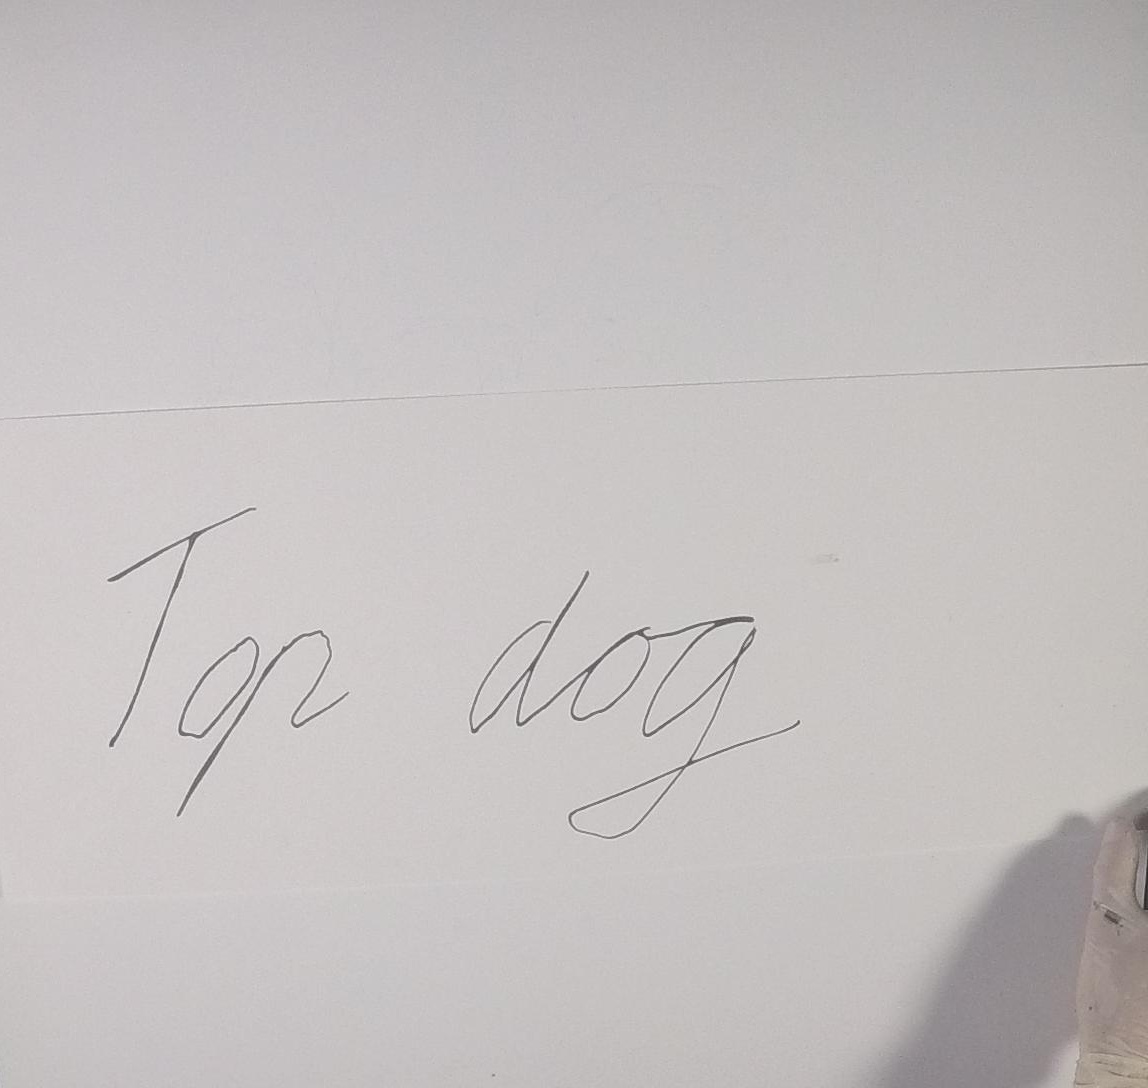 Top dog